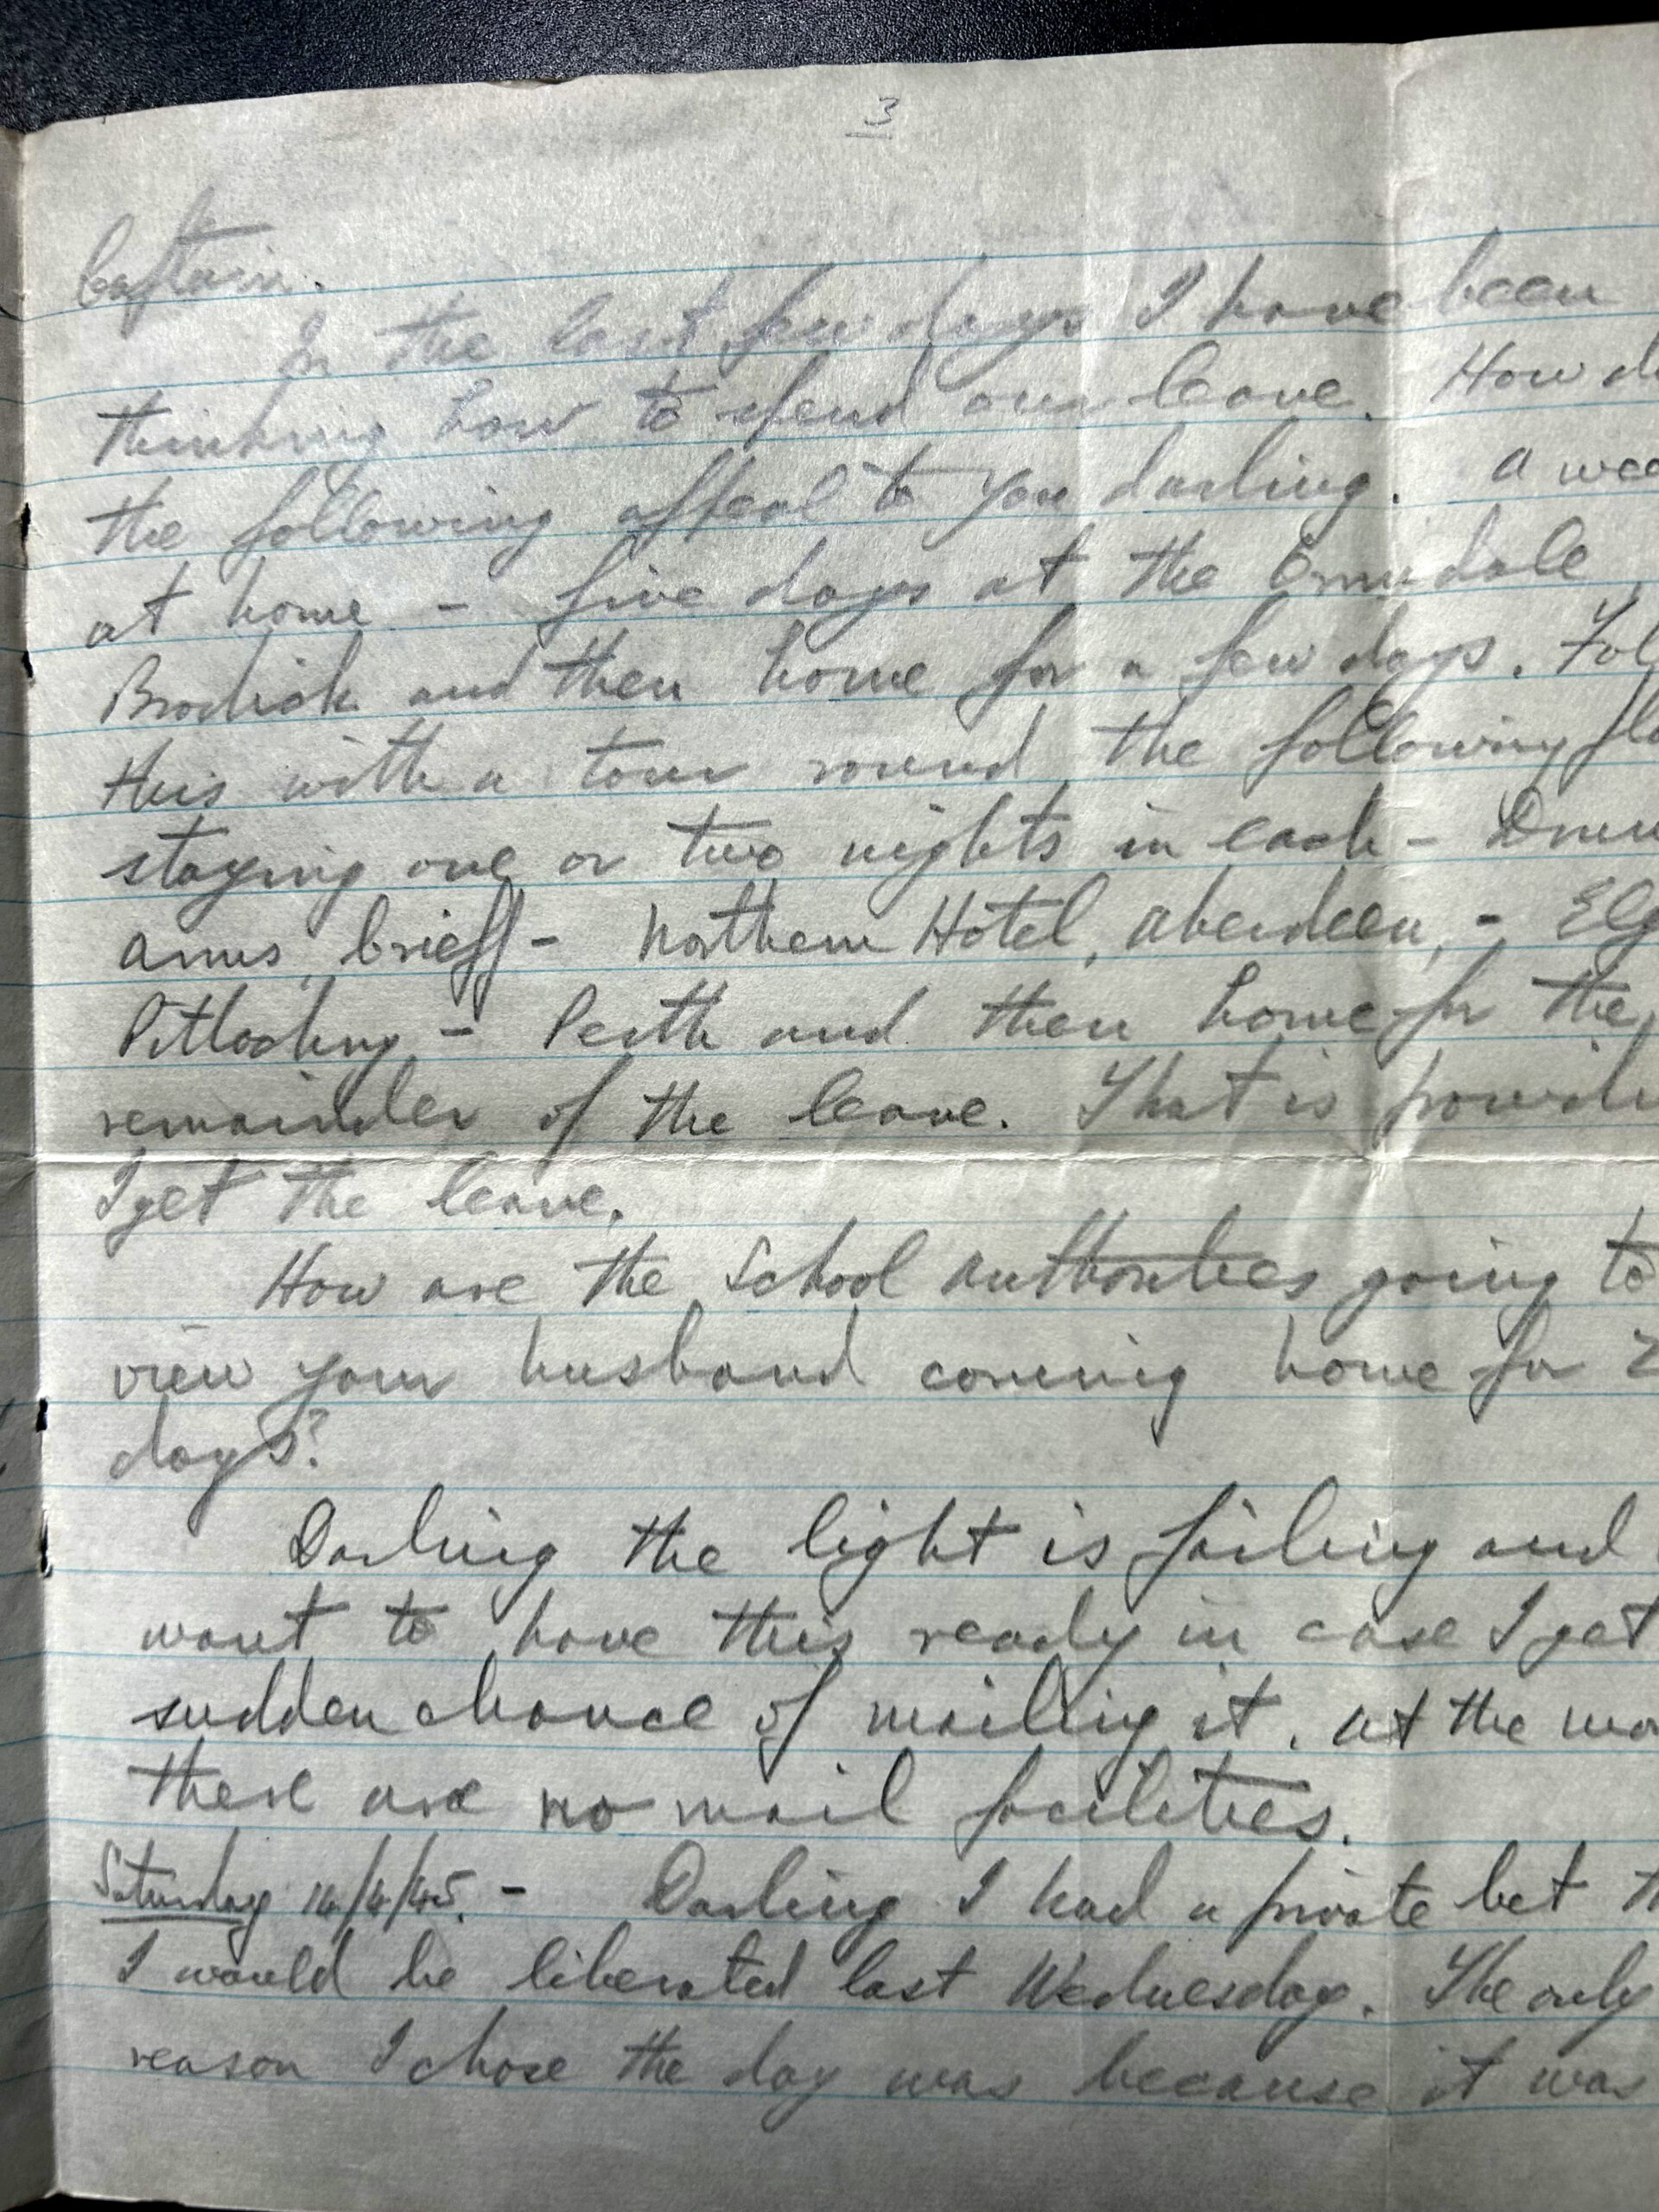 3
Captain.
In the last few days I have been
thinking how to spend our leave. How d
the following appeal to you darling. A wee
at home - five days at the Ennisdale
Brodick and then home for a few days. Fol
this with a tour round the following pla
staying one or two nights in each - Drum
Arms, Crieff - Northern Hotel, Aberdeen, - Elg
Pitlochry - Perth and then home for the
remainder of the leave. That is provid
I get the leave.
How are the School Authorities going to
view your husband coming home for
days?
Darling the light is failing and
want to have this ready in case I get
sudden chance of mailing it. At the mo
there are no mail facilities.
Saturday 14/4/45. - Darling I had a private bet th
I would be liberated last Wednesday. The only
reason I chose the day was because it was